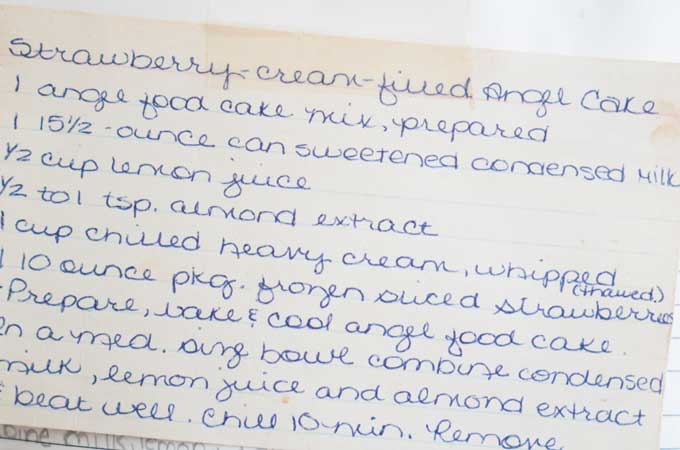 Strawberry-cream-filled Angel Cake
1 angel food cake mix, prepared
1 15 1/2-ounce can sweetened condensed milk
1/2 cup lemon juice
1/2 to 1 tsp. almond extract
1 cup chilled heavy cream, whipped
(thawed)
1 10 ounce pkg. frozen sliced strawberries
-Prepare, bake & cool angel food cake.
In a med. sing bowl combine condensed
milk, lemon juice and almond extract
& beat well. Chill 10 min. Remove
milk, lemon